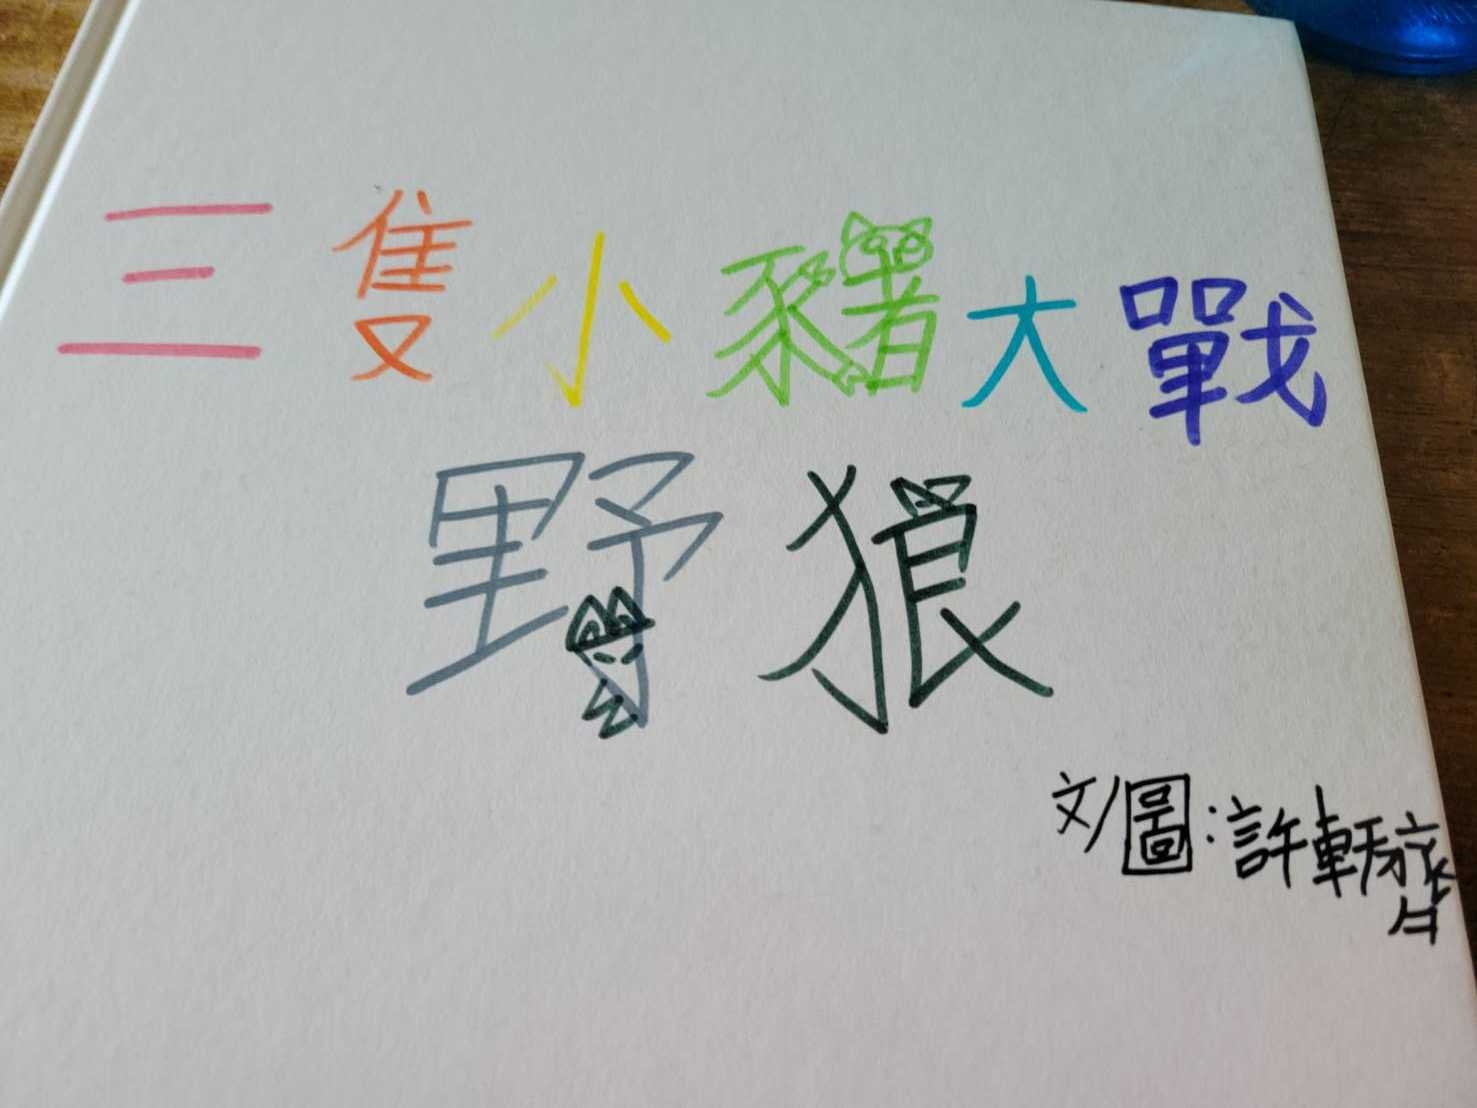 三隻小豬大戰
野狼
文/圖:許軒齊